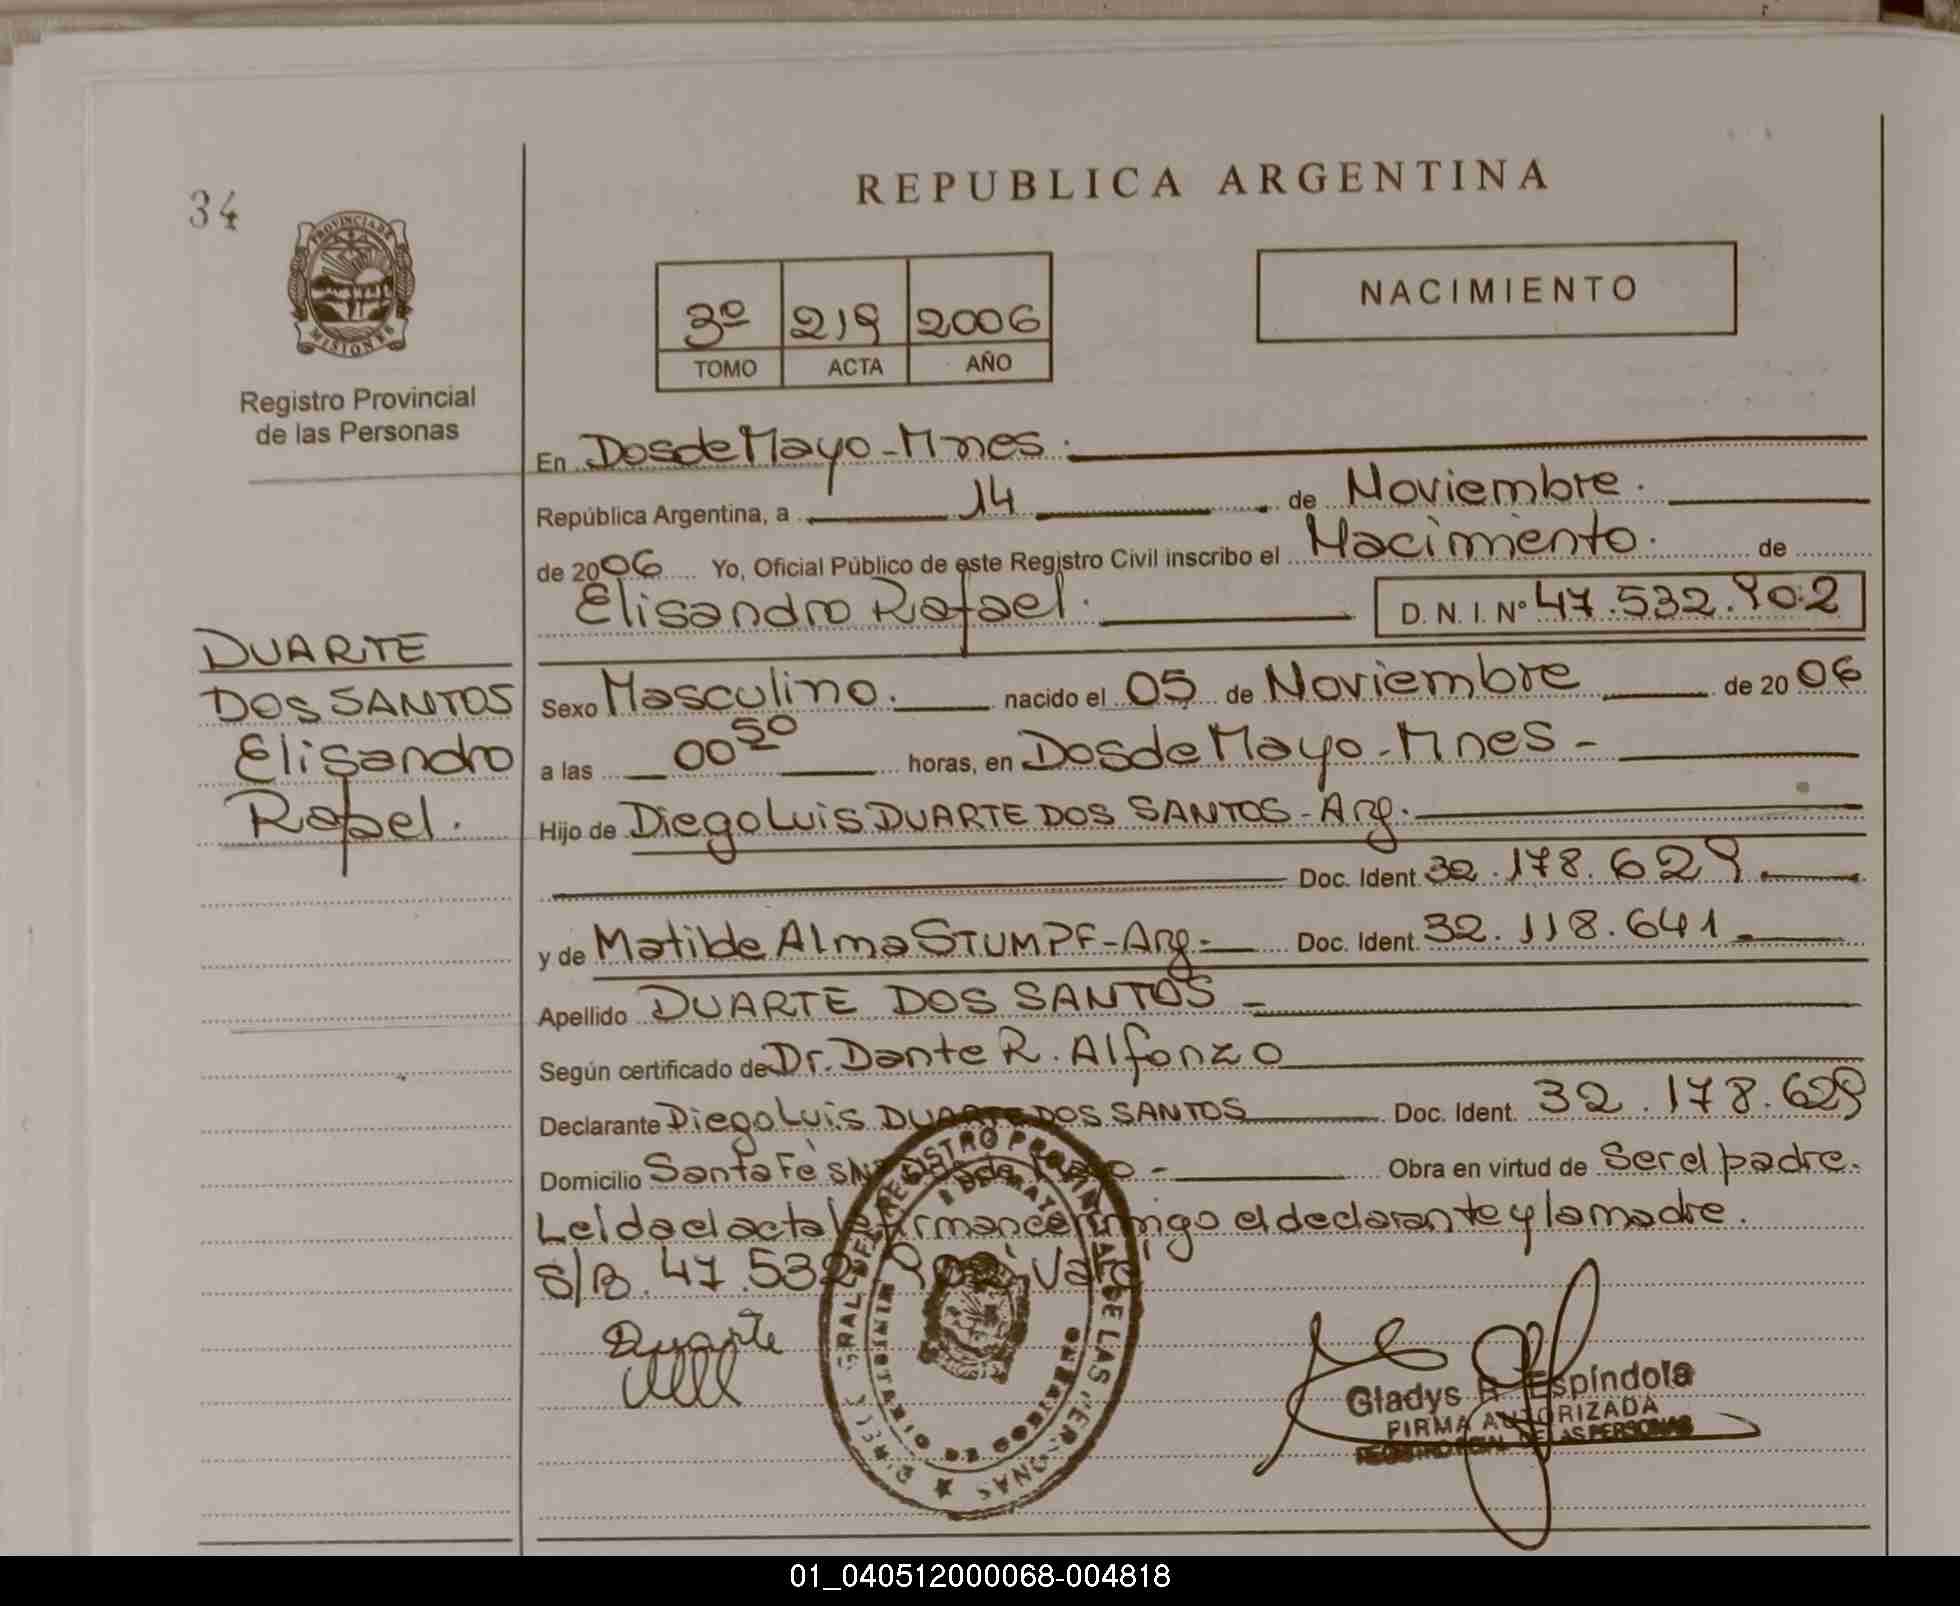 REPUBLICA ARGENTINA
34
PROVINCIA DE
MISIONES
Registro Provincial
de las Personas
3º 219 2006
TOMO ACTA AÑO
NACIMIENTO
En Dos de Mayo - Mnes.
República Argentina, a 14 de Noviembre.
de 2006 Yo, Oficial Público de este Registro Civil inscribo el Nacimiento. de
Elisandro Rafael. D. N. I. Nº 47.532.902
DUARTE
DOS SANTOS
Elisandro
Rafael.
Sexo Masculino. nacido el 05 de Noviembre de 2006
a las 00 50 horas, en Dos de Mayo - Mnes -
Hijo de Diego Luis DUARTE DOS SANTOS - Arg.
Doc. Ident. 32.178.629
y de Matilde Alma STUMPF - Arg - Doc. Ident. 32.118.641
Apellido DUARTE DOS SANTOS -
Según certificado de Dr. Dante R. Alfonzo
Declarante Diego Luis DUARTE DOS SANTOS Doc. Ident. 32.178.629
Domicilio Santa Fé S/N Dos de Mayo - Obra en virtud de Ser el padre.
Leida el acta la firman conmigo el declarante y la madre.
S/B. 47.532. Vale
Duarte
REGISTRO PROVINCIAL DE LAS PERSONAS
2 DE MAYO
MINISTERIO DE GOBIERNO
Gladys Espíndola
FIRMA AUTORIZADA
REGISTRO PCIAL. DE LAS PERSONAS
01_040512000068-004818